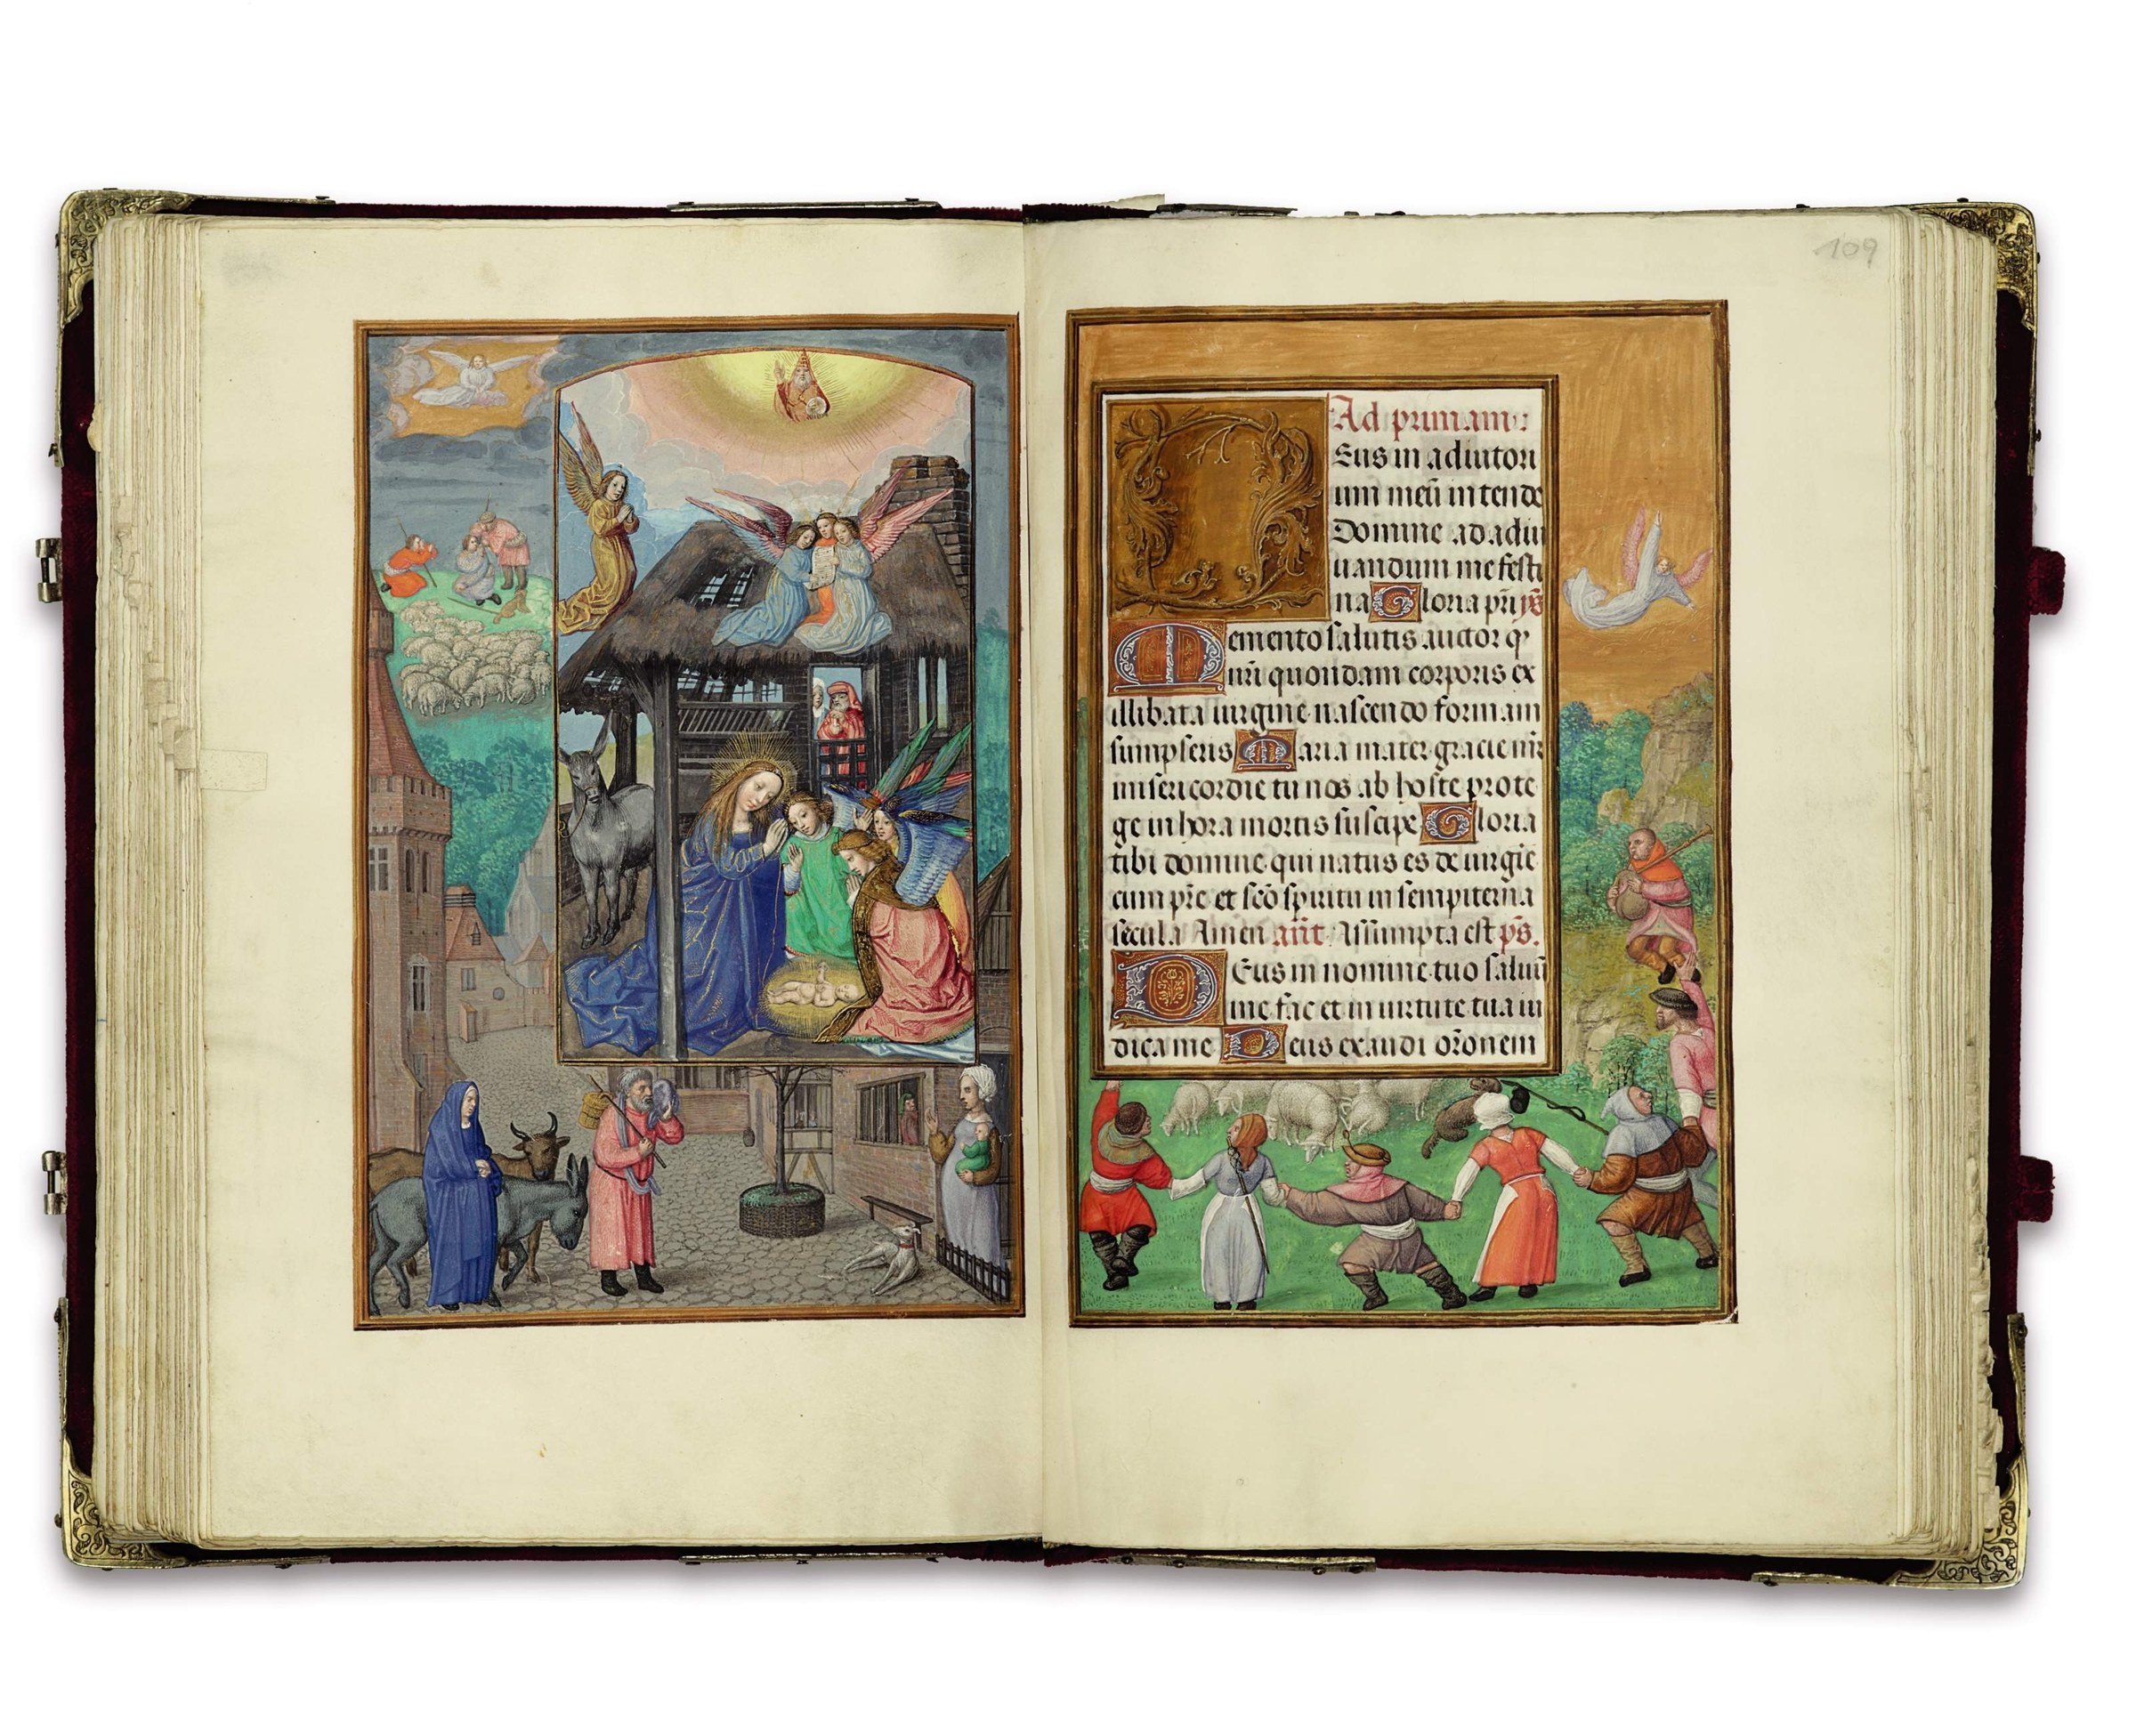 109
Ad primam:
Deus in adiutori
um meū intende
Domine ad adiu
uandum me festi
na Gloria pri ps
Memento salutis auctor q
nr̄i quondam corporis ex
illibata uirgine nascendo formam
sumpseris Maria mater gracie mr̄
misericordie tu nos ab hoste prote
ge in hora mortis suscipe Gloria
tibi domine qui natus es de uirgīe
cum pr̄e et sc̄o spiritu in sempiterna
secula Amen ant̄. Assumpta est ps.
Deus in nomine tuo saluū
me fac et in uirtute tua iu
dica me Deus exaudi or̄onem